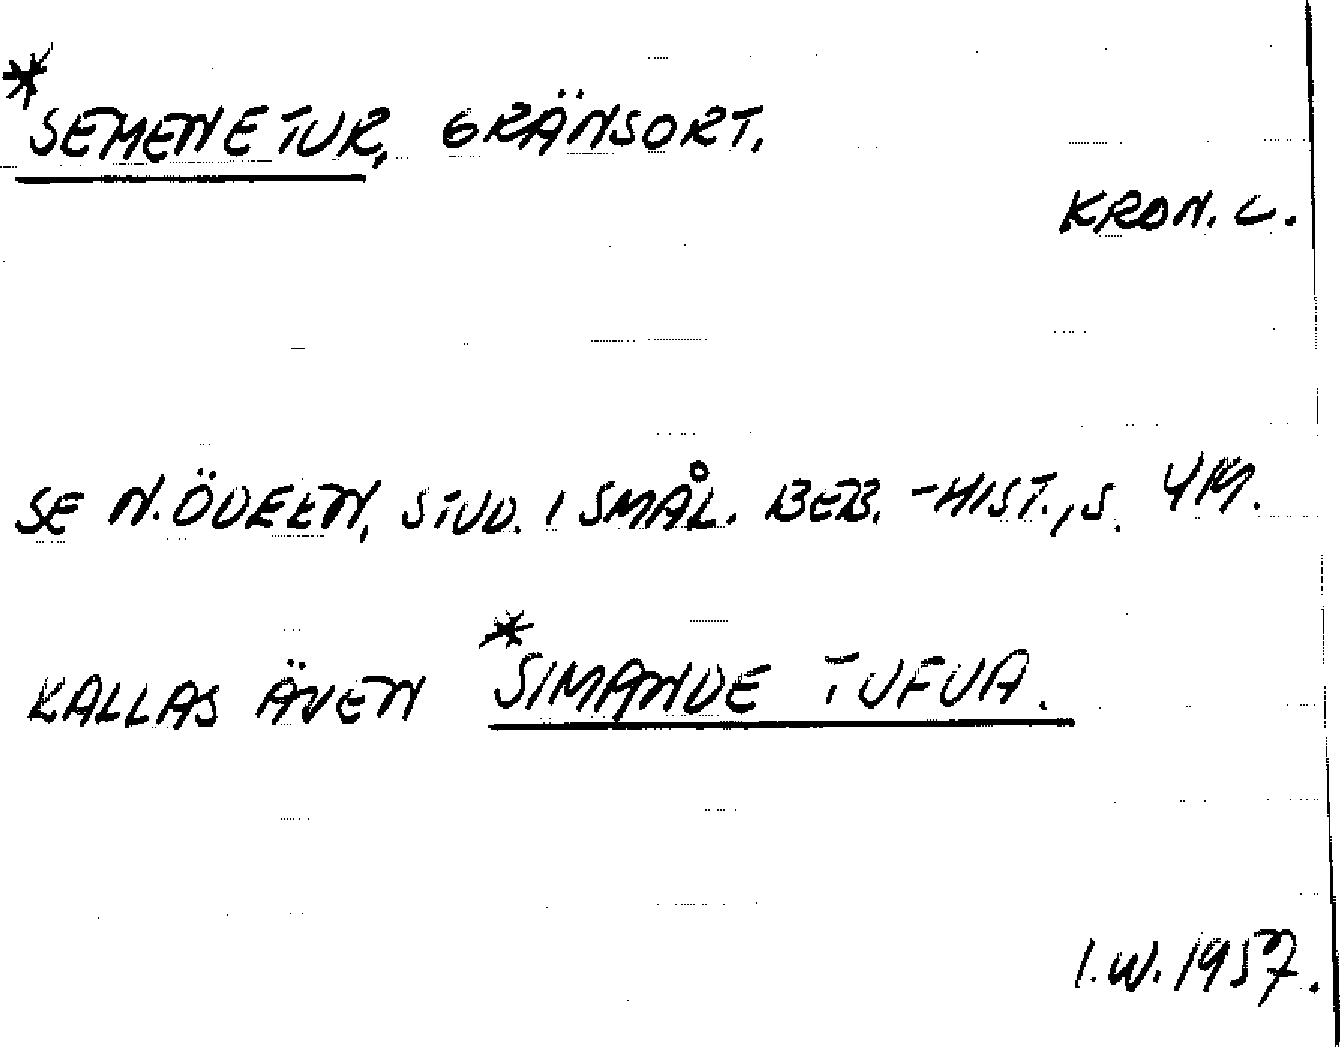 *SEMENETUR, GRÄNSORT.
KRON. L.
SE N.ÖDEEN, STUD. I SMÅL. BEB.-HIST., S. 419.
KALLAS ÄVEN *SIMANDE TUFVA.
I.W. 1957.